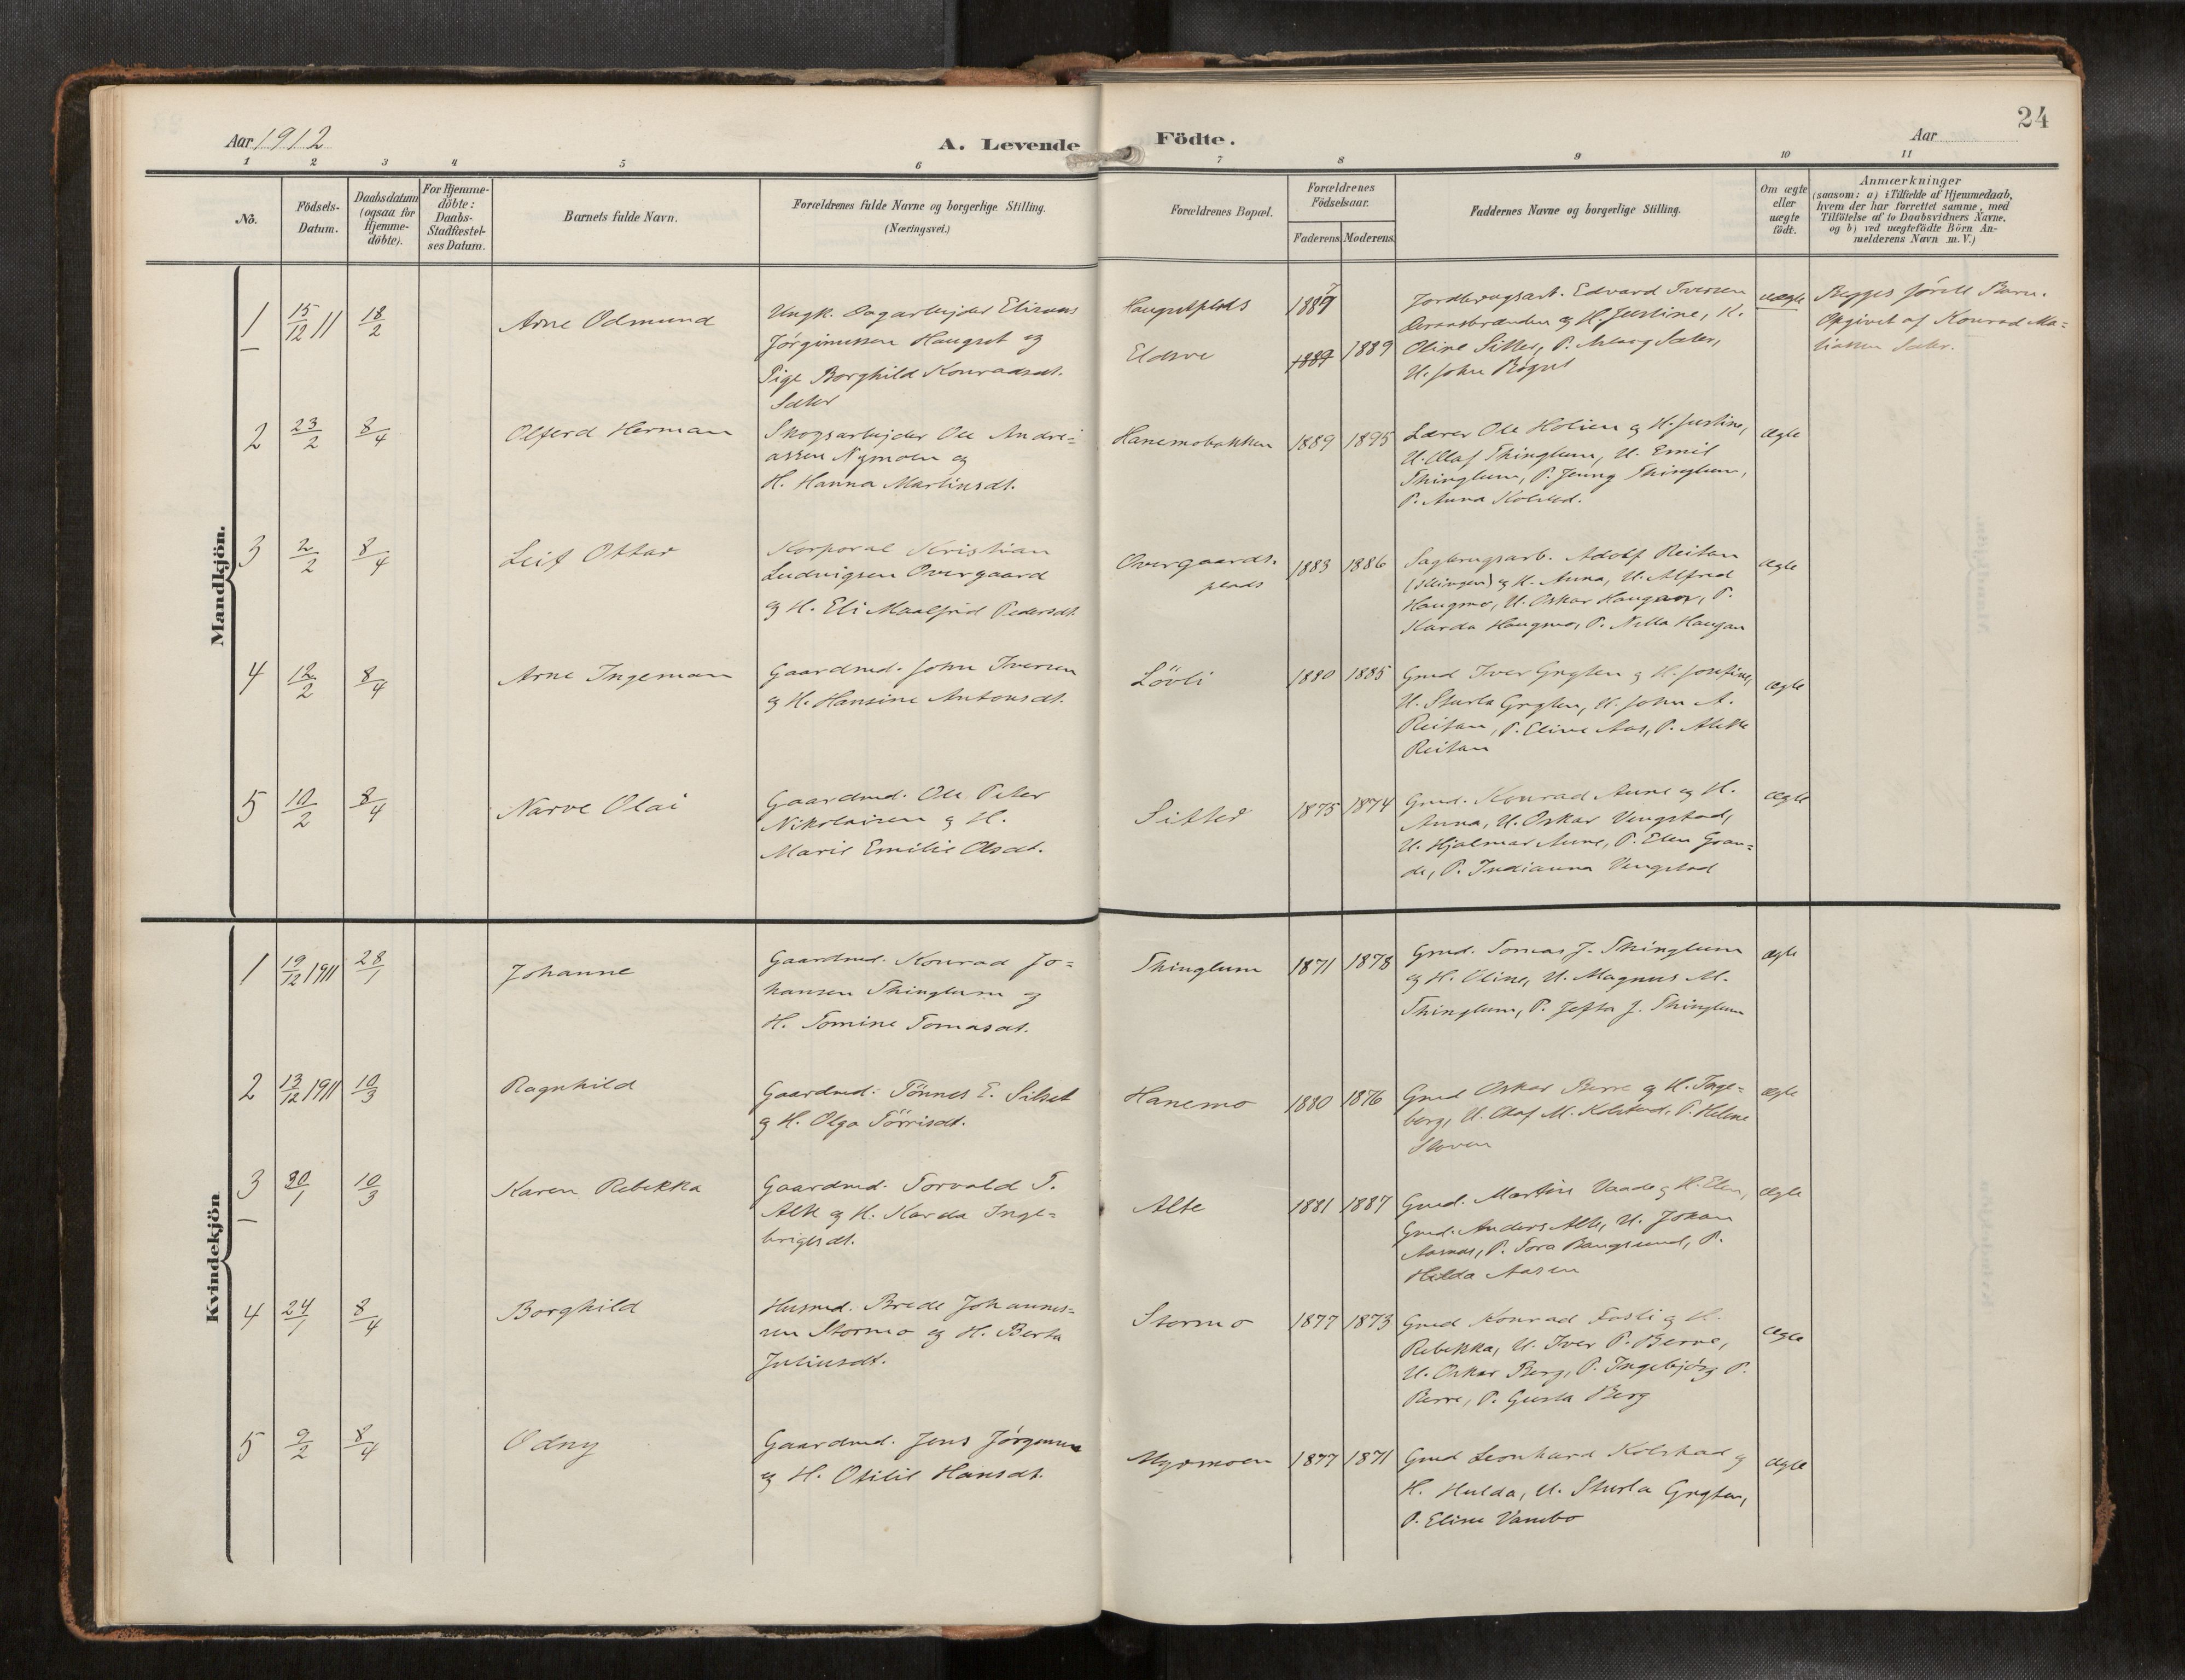 24
Aar 1912
A. Levende
Födte.
Aar
1 2 3 4 5 6 7 8 9 10 11
Nö.
Födsels-
Datum.
Daabsdatum
(ogsaa for
Hjemme-
döbte).
For Hjemme-
döbte:
Daabs-
Stadfæstel-
ses Datum.
Barnets fulde Navn.
Forældrenes fulde Navne og borgerlige Stilling.
(Næringsvei.)
Forældrenes Bopæl.
Forældrenes
Födselsaar.
Faderens. Moderens.
Faddernes Navne og borgerlige Stilling.
Om ægte
eller
uægte
födt.
Anmærkninger
(saasom: a) i Tilfælde af Hjemmedaab,
hvem der har forrettet samme, med
Tilföielse af to Daabsvidners Navne.
og b) ved uægtefödte Börn An-
melderens Navn m. V.)
Mandkjön.
1
15/12 11
18/2
Arne Odmund
Ungk. Dagarbejder
Jørginussen Haugset og
Pige Borghild Konradsdt.
Sæter
Eldsve
1887
1889
1889
Jordbrugsarb. Edvard Iversen
og H. Justine, K.
Oline Sitter, P. Aslaug Sæter,
U. John
uægte
Begges første Barn.
Opgivet af Konrad Ma=
Sæter.
2
23/2
8/4
Olferd Herman
Skogsarbejder Ole Andre=
assen Nymoen og
H. Hanna Martinsdt.
Hanemobakken
1889
1895
Lærer Ole Holien og H. Justine,
U. Olaf Thinglum, U. Emil
Thinglum, P. Jenny Thinglum,
P. Anna Kolstad.
ægte
3
2/2
8/4
Leif Ottar
Korporal Kristian
Ludvigsen Overgaard
og H. Eli Maalfrid Pedersdt.
Overgaards-
plads
1883
1886
Sagbrugsarb. Adolf Reitan
og H. Anna, U. Alfred
Haugmo, U. Oskar Haugan, P.
Karda Haugmo, P. Nella Haugan
ægte
4
12/2
8/4
Arne Ingeman
Gaardmd. John Iversen
og H. Hansine Antonsdt.
Lövli
1880
1885
Gmd Iver Grytten og H. Josefine,
U. Sturla Grytten, U. John A.
Reitan, P. Eline Aas, P. Alette
Reitan
ægte
5
10/2
8/4
Narve Olai
Gaardmd. Ole Peter
Nikolaisen og H.
Marie Emilie Olsdt.
Sitter
1875
1874
Gmd. Konrad Aune og H.
Anna, U. Oskar Vengstad,
U. Hjalmar Aune, P. Elen Gran=
de, P. Indianna Vengstad
ægte
Kvindekjön
1
19/12 1911
28/1
Johanne
Gaardmd. Konrad Jo=
hansen Thinglum og
H. Tomine Tomasdt.
Thinglum
1871
1878
Gmd. Tomas J. Thinglum
og H. Oline, U. Magnus M.
Thinglum, P. Jefta J. Thinglum
ægte
2
13/12 1911
10/3
Ragnhild
Gaardmd. Tönnes E. Salset
og H. Olga Törrisdt.
Hanemo
1880
1876
Gmd Oskar Berre og H. Inge=
borg, U. Olaf M. Kolstad, P. Helene
ægte
3
30/1
10/3
Karen Rebekka
Gaardmd. Torvald T.
Alte og H. Karda Inge=
brigtsdt.
Alte
1881
1887
Gmd. Martin Vaade og H. Elen,
Gmd. Anders Alte, U. Johan
Aasnes, P. Tora Bangsund, P.
Hilda Aasen
ægte
4
24/1
8/4
Borghild
Husmd. Brede Johannes=
sen Stormo og H. Berta
Juliusdt.
Stormo
1877
1873
Gmd Konrad Fosli og H.
Rebekka, U. Iver P. Berre,
U. Oskar Berg, P. Ingebjørg P.
Berre, P. Gusta Berg
ægte
5
9/2
8/4
Odny
Gaardmd. Jens Jørgensen
og H. Otilie Hansdt.
Myrmoen
1877
1871
Gmd Leonhard Kolstad og
H. Hulda, U. Sturla Grytten,
P. Eline Vambo
ægte